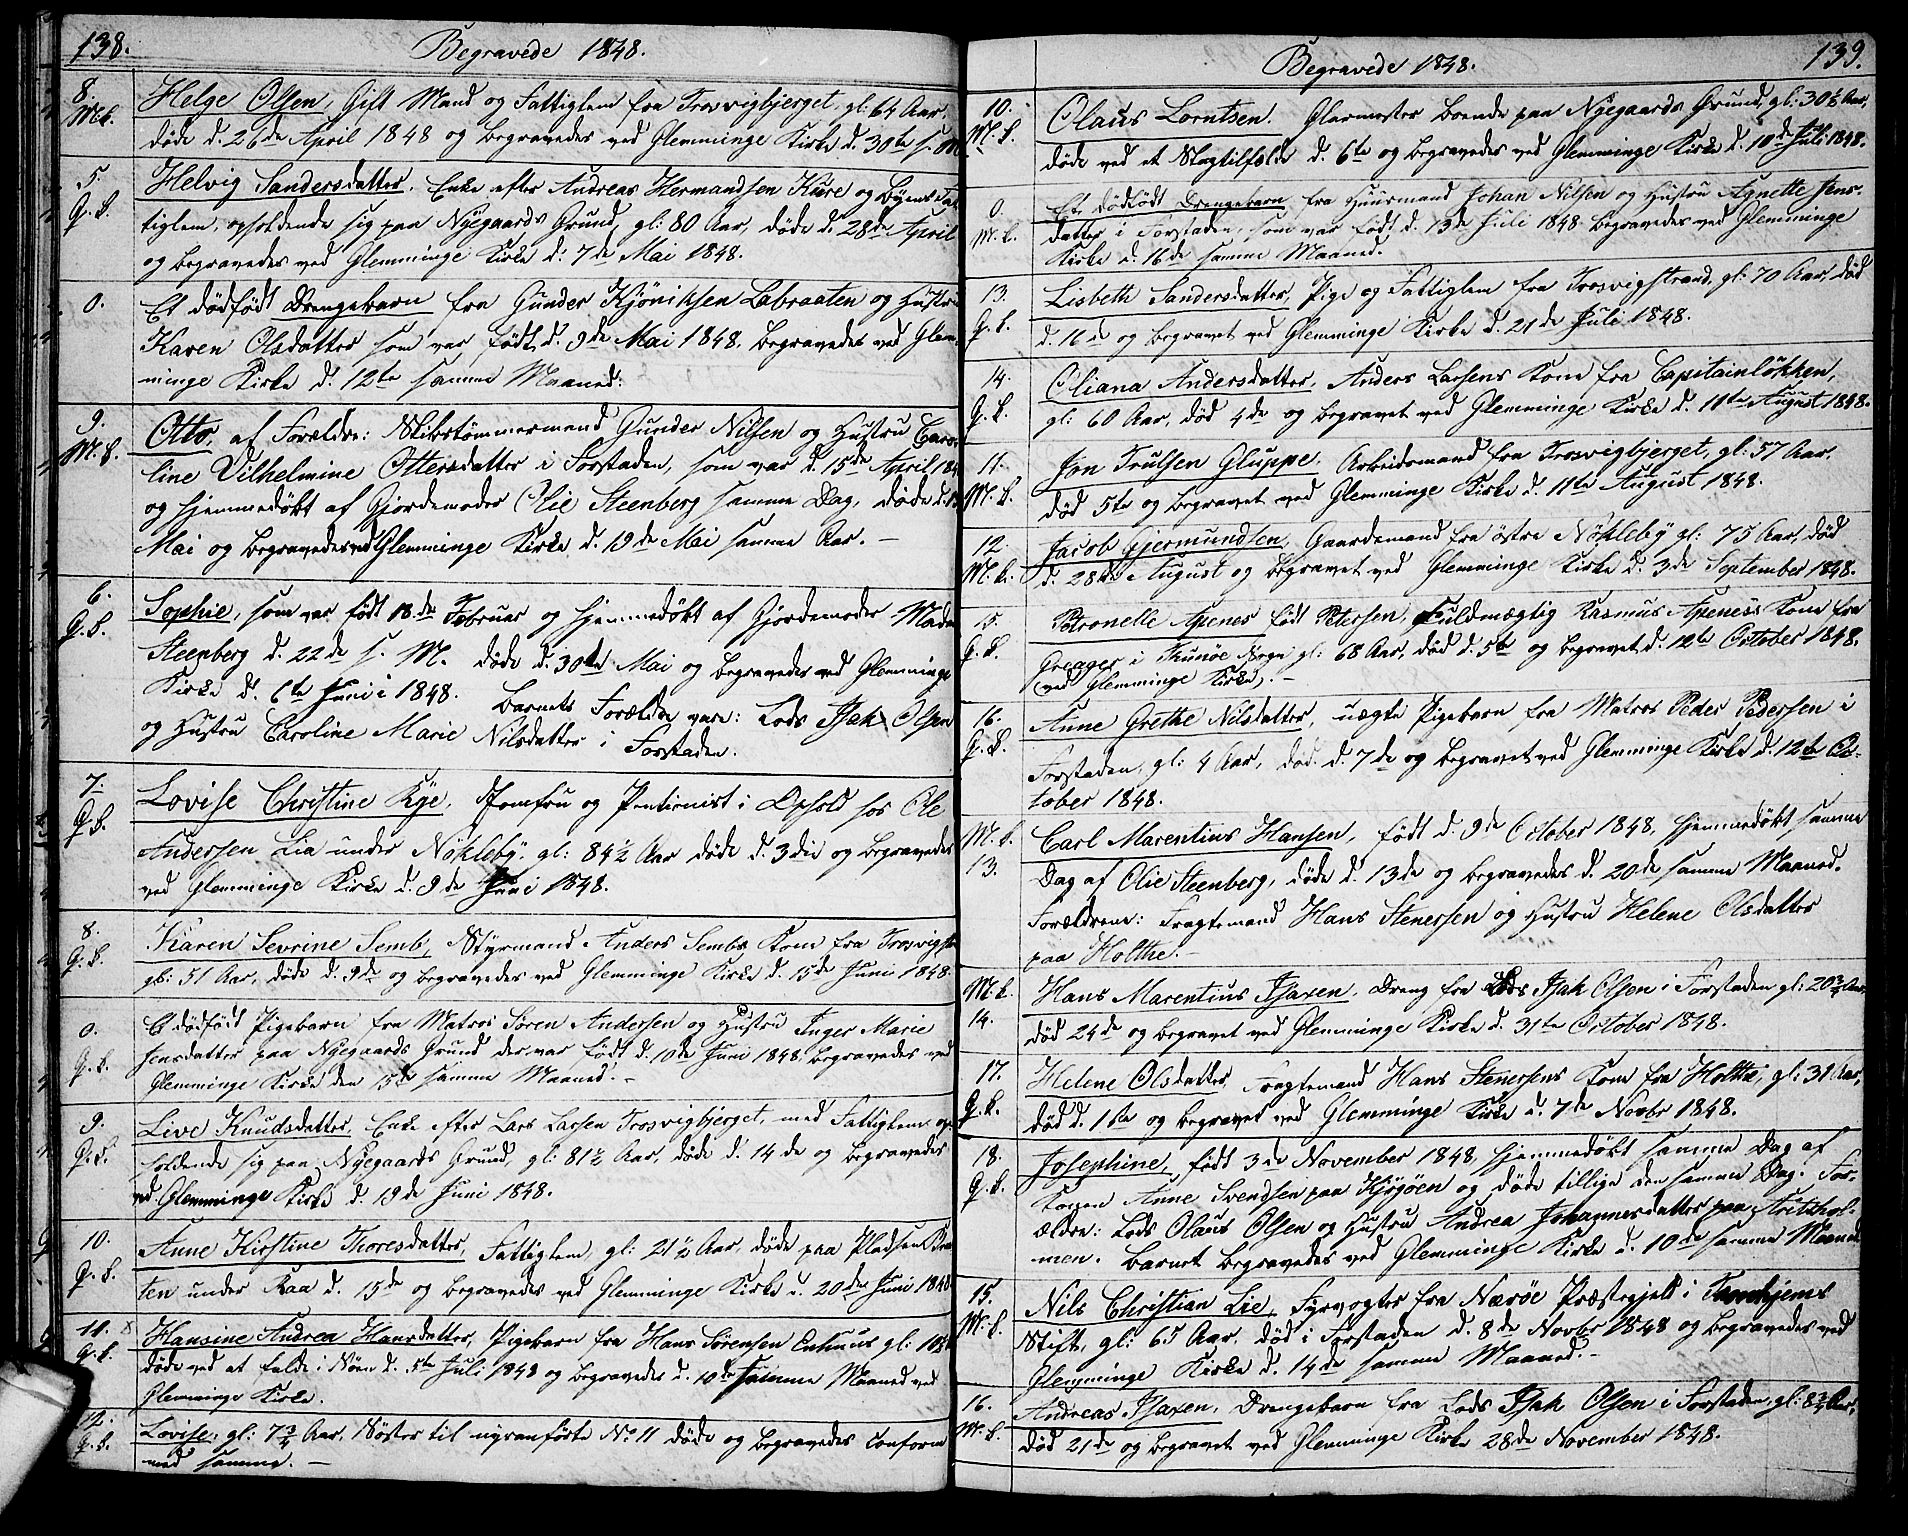 138.
Begravede 1848.
8.
M.k.
Helge Olsen, Gift Mand og Fattiglem fra Trosvigbjerget, gl: 64 Aar,
døde d. 26de April 1848 og begravedes ved Glemminge Kirke d. 30te s. M.
5.
Q.k.
Helvig Sandersdatter, Enke efter Andreas Hermandsen Kure og Byens Fat-
tiglem, opholdende sig paa Nyegaards Grund, gl: 80 Aar, døde d. 28de April
og begravedes ved Glemminge Kirke d: 7de Mai 1848.
0.
Et dødfødt Drengebarn fra Gunder Kjöniksen Labraaten og Hustru
Karen Olsdatter som var født d. 9de Mai 1848, begravedes ved Glem-
minge Kirke d. 12te samme Maaned.
9.
M.k.
Otto, af Forældre: Skibstømmermand Gunder Nilsen og Hustru Caro-
line Vilhelmine Ottersdatter i Forstaden, som var d. 15de April 184
og hjemmedøbt af Gjordemoder Olie Steenberg samme Dag, døde d.
Mai og begravedes ved Glemminge Kirke d. 19de Mai samme Aar. —
6.
Q.k.
Sophie, som var født 18de Februar og hjemmedøbt af Gjordemoder Madm
Steenberg d. 22de s. M. døde d. 30te Mai og begravedes ved Glemminge
Kirke d. 6te Juni 1848. Barnets Forældre vare: Lods Isak Olsen
og Hustru Caroline Marie Nilsdatter i Forstaden.
7.
Q.k.
Lovise Christine Rye, Jomfru og Pentionist i Ophold hos Ole
Andersen Lia under Nökleby, gl: 84½ Aar døde d. 3die og begravedes
ved Glemminge Kirke d. 9de Juni 1848.
8.
Q.k.
Karen Sevrine Semb, Styrmand Anders Sembs Kone fra Trosvigst
gl: 51 Aar, døde d. 9de og begravedes ved Glemminge Kirke d. 15de Juni 1848.
0.
Q.k.
E dödfödt Pigebarn fra Matros Sören Andersen og Hustru Inger Marie
Jensdatter paa Nyegaards Grund der var født d. 10de Juni 1848, begravedes ved
Glemminge Kirke den 15de samme Maaned. —
9.
Q.k.
Live Knudsdatter, Enke efter Lars Larsen Trosvigbjerget, med Fattiglem op-
holdende sig paa Nyegaards Grund, gl: 81½ Aar, døde d. 14de og begravedes
ved Glemminge Kirke d. 19de Juni 1848.
10.
Q.k.
Anne Kirstine Thoresdatter, Fattiglem, gl: 21½ Aar, døde paa Pladsen Braa
ten under Raa d. 15de og begravedes ved Glemminge Kirke d. 20de Juni 1848
11.
Q.k.
Hansine Andrea Hansdatter, Pigebarn fra Hans Sörensen Enhuus gl:
døde ved at falde i Söen d. 5te Juli 1848 og begravedes d. 10de samme Maaned ved
Glemminge Kirke.
12.
Q.k.
Lovise, gl: 7¾ Aar, Søster til nysanførte No 11 døde og begravedes conform
med samme. —
139.
Begravede 1848.
10.
M.k.
Olaus Lorntsen. Glarmester boende paa Nyegaards Grund, gl: 30½ Aar,
døde ved et Slagtilfælde d. 6te og begravedes ved Glemminge Kirke d. 10de Juli 1848.
0.
M.k.
Et dødfödt Drengebarn fra Huusmand Johan Nilsen og Hustru Agnette Jens-
datter i Forstaden, som var født d. 13de Juli 1848 begravedes ved Glemminge
Kirke d. 16de samme Maaned.
13.
Q.k.
Lisbeth Sandersdatter, Pige og Fattiglem fra Trosvigstrand, gl: 70 Aar, død
d. 16de og begravet ved Glemminge Kirke d. 21de Juli 1848.
14.
Q.k.
Oliana Andersdatter, Anders Larsens Kone fra Capitainlökken,
gl: 60 Aar, død 4de og begravet ved Glemminge Kirke d. 11te August 1848.
11.
M.k.
Jon Trulsen Gluppe. Arbeidsmand fra Trosvigbjerget, gl: 57 Aar,
død 5te og begravet ved Glemminge Kirke d. 11te August 1848.
12.
M.k.
Jacob Gjermundsen, Gaardemand fra østre Nökleby gl: 75 Aar, død
d. 28de August og begravet ved Glemminge Kirke d. 3de September 1848.
15.
Q.k.
Petronelle Apenes født Petersen, Fuldmægtig Rasmus Apeness Kone fra
Greager i Thunöe Sogn gl: 68 Aar, død d. 5te og begravet d. 12te October 1848.
(ved Glemminge Kirke). —
16.
Q.k.
Anne Grethe Nilsdatter, uægte Pigebarn fra Matros Peder Pedersen i
Forstaden, gl: 4 Aar, død d. 7de og begravet ved Glemminge Kirke d. 12te Oc-
tober 1848.
M.k.
13.
Carl Marentius Hansen, født d. 9de October 1848, hjemmedøbt samme
Dag af Olie Steenberg, døde d. 13de og begravedes d. 20de samme Maaned.
Forældrene: Fragtemand Hans Stenersen og Hustru Helene Olsdatter
paa Holthe. —
M.k.
14.
Hans Marentius Isaxen, Dreng fra Lods Isak Olsen i Forstaden gl: 20¾ Aar,
død 24de og begravet ved Glemminge Kirke d. 31te October 1848.
17.
Q.k.
Helene Olsdatter, Fragtemand Hans Stenersens Kone fra Holthe, gl: 31 Aar,
død d. 1ste og begravet ved Glemminge Kirke d. 7de Novbr 1848.
18.
Q.k.
Josephine, født 3de November 1848, hjemmedøbt samme Dag af
Konen Anne Svendsen paa Kjøgöen og døde tillige den samme Dag. For-
ældre: Lods Olaus Olsen og Hustru Andrea Johannesdatter paa
men. Barnet begravedes ved Glemminge Kirke d. 10de samme Maaned
15.
M.k.
Nils Christian Lie, Fyrvogter fra Næröe Præstegjeld i Trondhjems
Stift, gl: 65 Aar, død i Forstaden d. 8de Novbr 1848 og begravedes ved
Glemminge Kirke d. 14de samme Maaned. —
16.
M.k.
Andreas Isaxen, Drengebarn fra Lods Isak Olsen i Forstaden, gl: 8¾ Aar,
død 21de og begravet ved Glemminge Kirke 28de November 1848.